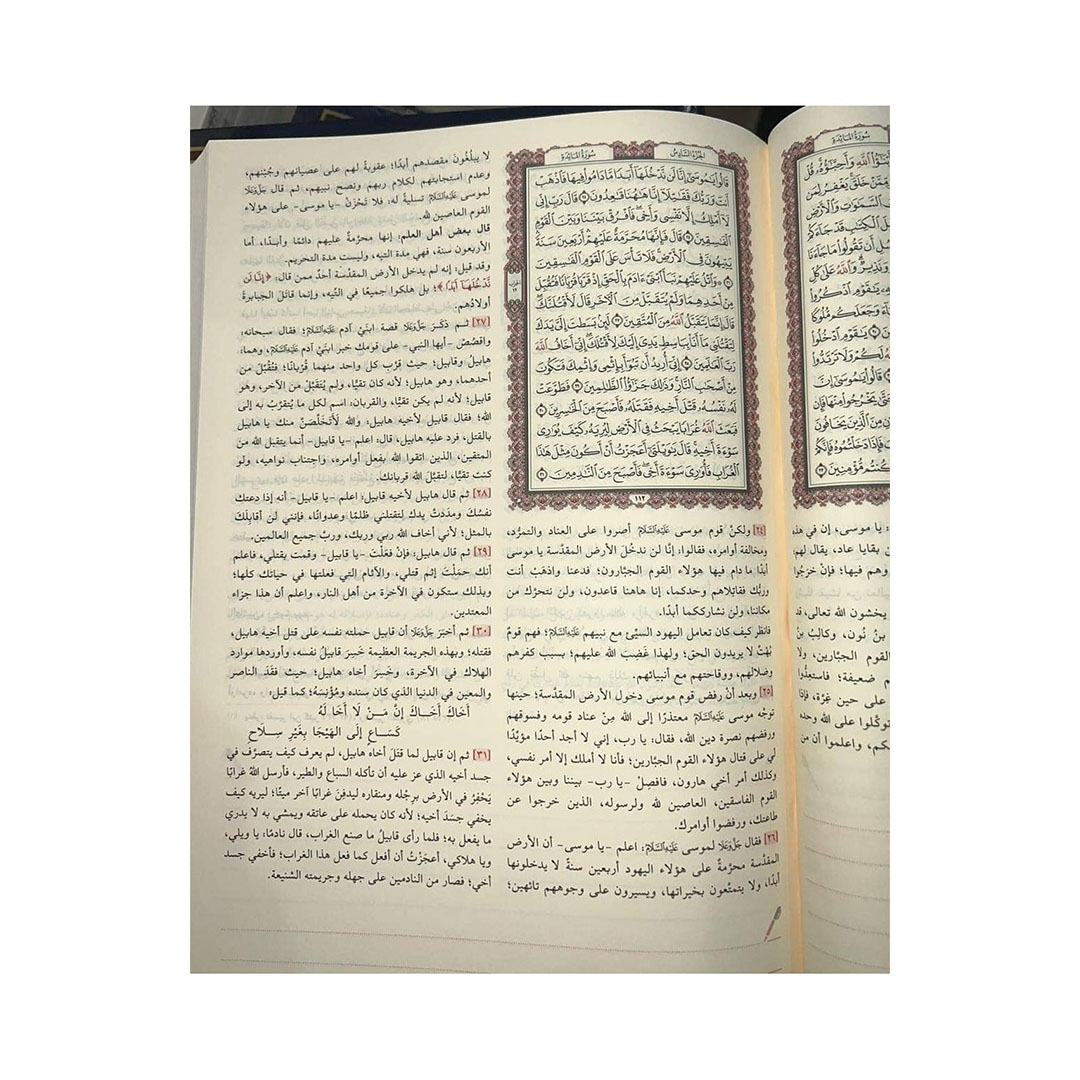 الجزء السادس
سورة المائدة
قَالُوا يَامُوسَىٰ إِنَّا لَن نَّدْخُلَهَا أَبَدًا مَّا دَامُوا فِيهَا فَاذْهَبْ
أَنتَ وَرَبُّكَ فَقَاتِلَا إِنَّا هَاهُنَا قَاعِدُونَ ٢٤ قَالَ رَبِّ إِنِّي
لَا أَمْلِكُ إِلَّا نَفْسِي وَأَخِي فَافْرُقْ بَيْنَنَا وَبَيْنَ الْقَوْمِ
الْفَاسِقِينَ ٢٥ قَالَ فَإِنَّهَا مُحَرَّمَةٌ عَلَيْهِمْ أَرْبَعِينَ سَنَةً
يَتِيهُونَ فِي الْأَرْضِ فَلَا تَأْسَ عَلَى الْقَوْمِ الْفَاسِقِينَ
٢٦ وَاتْلُ عَلَيْهِمْ نَبَأَ ابْنَيْ آدَمَ بِالْحَقِّ إِذْ قَرَّبَا قُرْبَانًا فَتُقُبِّلَ
مِنْ أَحَدِهِمَا وَلَمْ يُتَقَبَّلْ مِنَ الْآخَرِ قَالَ لَأَقْتُلَنَّكَ
قَالَ إِنَّمَا يَتَقَبَّلُ اللَّهُ مِنَ الْمُتَّقِينَ ٢٧ لَئِن بَسَطتَ إِلَيَّ يَدَكَ
لِتَقْتُلَنِي مَا أَنَا بِبَاسِطٍ يَدِيَ إِلَيْكَ لِأَقْتُلَكَ إِنِّي أَخَافُ اللَّهَ
رَبَّ الْعَالَمِينَ ٢٨ إِنِّي أُرِيدُ أَن تَبُوءَ بِإِثْمِي وَإِثْمِكَ فَتَكُونَ
مِنْ أَصْحَابِ النَّارِ وَذَٰلِكَ جَزَاءُ الظَّالِمِينَ ٢٩ فَطَوَّعَتْ
لَهُ نَفْسُهُ قَتْلَ أَخِيهِ فَقَتَلَهُ فَأَصْبَحَ مِنَ الْخَاسِرِينَ ٣٠
فَبَعَثَ اللَّهُ غُرَابًا يَبْحَثُ فِي الْأَرْضِ لِيُرِيَهُ كَيْفَ يُوَارِي
سَوْءَةَ أَخِيهِ قَالَ يَاوَيْلَتَىٰ أَعَجَزْتُ أَنْ أَكُونَ مِثْلَ هَٰذَا
الْغُرَابِ فَأُوَارِيَ سَوْءَةَ أَخِي فَأَصْبَحَ مِنَ النَّادِمِينَ ٣١
١١٢
[٢٤] ولكنَّ قوم موسى عَلَيْهِ السَّلَامُ أصروا على العناد والتمرُّد،
ومخالفة أوامره، فقالوا: إنَّا لن ندخُلَ الأرض المقدَّسة يا موسى
أبدًا ما دام فيها هؤلاء القوم الجبَّارون؛ فدعنا واذهَبْ أنت
وربُّك فقاتِلاهم وحدكما، إنا هاهنا قاعدون، ولن نتحرَّك من
مكاننا، ولن نشارككما أبدًا.
فانظر كيف كان تعامل اليهود السيِّئ مع نبيهم عَلَيْهِ السَّلَامُ؛ فهم قومٌ
بُهْتٌ لا يريدون الحق؛ ولهذا غَضِبَ الله عليهم؛ بسبب كفرهم
وضلالهم، ووقاحتهم مع أنبيائهم.
[٢٥] وبعد أنْ رفض قوم موسى دخول الأرض المقدسة؛ حينها
توجَّه موسى عَلَيْهِ السَّلَامُ معتذرًا إلى الله مِنْ عناد قومه وفسوقهم
ورفضهم نصرة دين الله، فقال: يا رب، إني لا أجد أحدًا مؤيِّدًا
لي على قتال هؤلاء القوم الجبَّارين؛ فأنا لا أملك إلا أمر نفسي،
وكذلك أمر أخي هارون، فافصِلْ -يا رب- بيننا وبين هؤلاء
القوم الفاسقين، العاصين لله ولرسوله، الذين خرجوا عن
طاعتك، ورفضوا أوامرك.
[٢٦] فقال جَلَّ وَعَلَا لموسى عَلَيْهِ السَّلَامُ: اعلم -يا موسى- أن الأرض
المقدَّسة محرَّمةٌ على هؤلاء اليهود أربعين سنةً لا يدخلونها
أبدًا، ولا يتمتَّعون بخيراتها، ويسيرون على وجوههم تائهين؛
لا يبلُغُون مقصدهم أبدًا؛ عقوبةً لهم على عصيانهم وجُبْنِهم،
وعدم استجابتهم لكلام ربهم ونصح نبيهم، ثم قال جَلَّ وَعَلَا
لموسى عَلَيْهِ السَّلَامُ تسليةً له: فلا تَحْزَنْ -يا موسى- على هؤلاء
القوم العاصين لله.
قال بعض أهل العلم: إنها محرَّمةٌ عليهم دائمًا وأبدًا، أما
الأربعون سنة، فهي مدة التيه، وليست مدة التحريم.
وقد قيل: إنه لم يدخل الأرض المقدَّسة أحدٌ ممن قال: ﴿إِنَّا لَن
نَّدْخُلَهَا أَبَدًا﴾؛ بل هلكوا جميعًا في التِّيه، وإنما قاتَلَ الجبابرةَ
أولادُهم.
[٢٧] ثم ذكَرَ جَلَّ وَعَلَا قصة ابنَيْ آدم عَلَيْهِ السَّلَامُ؛ فقال سبحانه:
واقصُصْ -أيها النبي- على قومك خبر ابنَيْ آدم عَلَيْهِ السَّلَامُ، وهما:
هابيلُ وقابيل؛ حيث قرَّب كل واحد منهما قُرْبانًا؛ فتُقُبِّلَ من
أحدهما، وهو هابيل؛ لأنه كان تقيًّا، ولم يُتقبَّلْ مِن الآخر، وهو
قابيل؛ لأنه لم يكن تقيًّا، والقربان: اسم لكل ما يُتقرَّبُ به إلى
الله؛ فقال قابيل لأخيه هابيل، والله لَأَتخلَّصَنَّ منك يا هابيل
بالقتل، فرد عليه هابيل، قال: اعلم -يا قابيل- أنما يتقبل الله من
المتقين، الذين اتقوا الله بفعل أوامره، واجتناب نواهيه، ولو
كنت تقيًّا، لتقبَّل الله قربانك.
[٢٨] ثم قال هابيل لأخيه قابيل: اعلم -يا قابيل- أنه إذا دعتك
نفسُكَ ومدَدتَّ يدك لتقتلني ظلمًا وعدوانًا، فإنني لن أقابِلَكَ
بالمثل؛ لأني أخاف الله ربي وربك، وربَّ جميع العالمين.
[٢٩] ثم قال هابيل: فإنْ فعَلْتَ -يا قابيل- وقمت بقتلي، فاعلم
أنك حمَلْتَ إثم قتلي، والآثام التي فعلتها في حياتك كلها؛
وبذلك ستكون في الآخرة من أهل النار، واعلم أن هذا جزاء
المعتدين.
[٣٠] ثم أخبَرَ جَلَّ وَعَلَا أن قابيل حملته نفسه على قتل أخيه هابيل،
فقتله؛ وبهذه الجريمة العظيمة خَسِرَ قابيلُ نفسه، وأوردها موارد
الهلاك في الآخرة، وخَسِرَ أخاه هابيل؛ حيث فقَدَ الناصر
والمعين في الدنيا الذي كان سنده ومُؤْنِسَهُ؛ كما قيل:
أَخَاكَ أَخَاكَ إِنَّ مَنْ لَا أَخَا لَهُ
كَسَاعٍ إِلَى الْهَيْجَا بِغَيْرِ سِلَاحِ
[٣١] ثم إن قابيل لما قتَلَ أخاه هابيل، لم يعرف كيف يتصرَّف في
جسد أخيه الذي عز عليه أن تأكله السباع والطير، فأرسل اللهُ غرابًا
يَحْفِرُ في الأرض برِجْله ومنقاره ليدفِنَ غرابًا آخر ميتًا؛ ليريه كيف
يخفي جسَدَ أخيه؛ لأنه كان يحمله على عاتقه ويمشي به لا يدري
ما يفعل به؛ فلما رأى قابيلُ ما صنع الغراب، قال نادمًا: يا ويلي،
ويا هلاكي، أعجَزْتُ أن أفعل كما فعل هذا الغراب؛ فأخفي جسد
أخي؛ فصار من النادمين على جهله وجريمته الشنيعة.